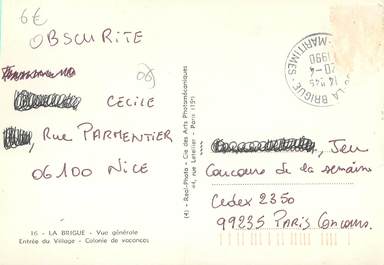 6€
OBSCURITE
CECILE
, Rue PARMENTIER
06100 NICE
16 - LA BRIGUE - Vue générale
Entrée du Village - Colonie de vacances
(4) - Real-Photo - Cie des Arts Photomécaniques
44, rue Letellier - Paris 15e
LA BRIGUE
14 H45
20-4
1990
-MARITIMES-
, Jeu
Concours de la semaine
Cedex 2350
99235 PARIS Concours.